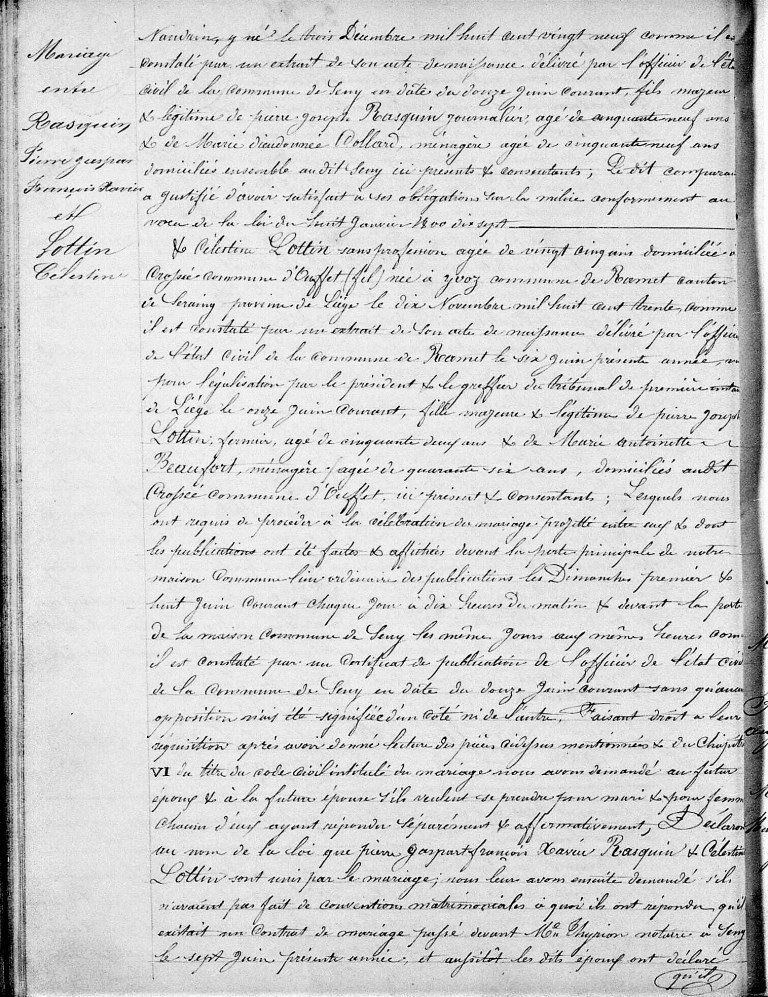 Mariage
entre
Rasquin
Pierre gaspar
François Xavier
et
Lottin
Célestine
Nandrin, y né le trois Décembre mil huit cent vingt neuf comme il es
constaté par un extrait de son acte de naissance délivré par l'officier de l'éta
civil de la commune de Seny en date du douze Juin courant, fils majeur
& légitime de pierre joseph Rasquin journalier, agé de cinquante neuf ans
& de Marie dieudonnée Collard, ménagère agée de cinquante neuf ans
domiciliés ensemble audit Seny ici présents & consentants; Le dit comparan
a justifié d'avoir satisfait a ses obligations sur la milice conformement au
voeu de la loi du huit Janvier 1800 dix sept
& Célestine Lottin sans profession agée de vingt cinq ans domiciliée à
Crossée commune d'Ouffet (fel) née à yvoz commune de Ramet canton
de Seraing province de Liège le dix Novembre mil huit cent trente, comme
il est constaté par un extrait de son acte de naissance délivré par l'officie
de l'état civil de la commune de Ramet le six juin présente année,
pour légalisation par le président & le greffier du tribunal de première insta
de Liège le onze Juin courant, fille majeure & légitime de pierre Joseph
Lottin, fermier, agé de cinquante deux ans & de Marie antoinette
Beaufort, ménagère agée de quarante six ans, domiciliés audit
Crossée commune d'Ouffet, ici présent & consentants; Lesquels nous
ont requis de procéder à la célébration du mariage projetté entre eux & dont
les publications ont été faites & affichées devant la porte principale de notre
maison commune lieu ordinaire des publications les Dimanches premier &
huit Juin courant chaque jour à dix heures du matin & devant la porte
de la maison commune de Seny les même jours aux mêmes heures com
il est constaté par un certificat de publication de l'officier de l'état civi
de la commune de Seny en date du douze Juin courant sans qu'aucun
opposition n'ais été signifiée d'un côté ni de l'autre. Faisant droit a leur
réquisition après avoir donné lecture des pièces cidessus mentionnées & du Chapitre
VI du titre du code civil intitulé du mariage nous avons demandé au futur
époux & à la future épouse s'ils veulent se prendre pour mari & pour femm
chacun d'eux ayant répondu séparément & affirmativement, Declaron
au nom de la loi que pierre gaspart françois Xavier Rasquin & Célestine
Lottin sont unis par le mariage; nous leur avons ensuite demandé s'ils
n'avaient pas fait de conventions matrimoniales à quoi ils ont répondu qu'il
existait un contrat de mariage passé devant Me Thyrion notaire à Seny
le sept Juin présente année; et aussitôt les dits époux ont déclaré
qu'il